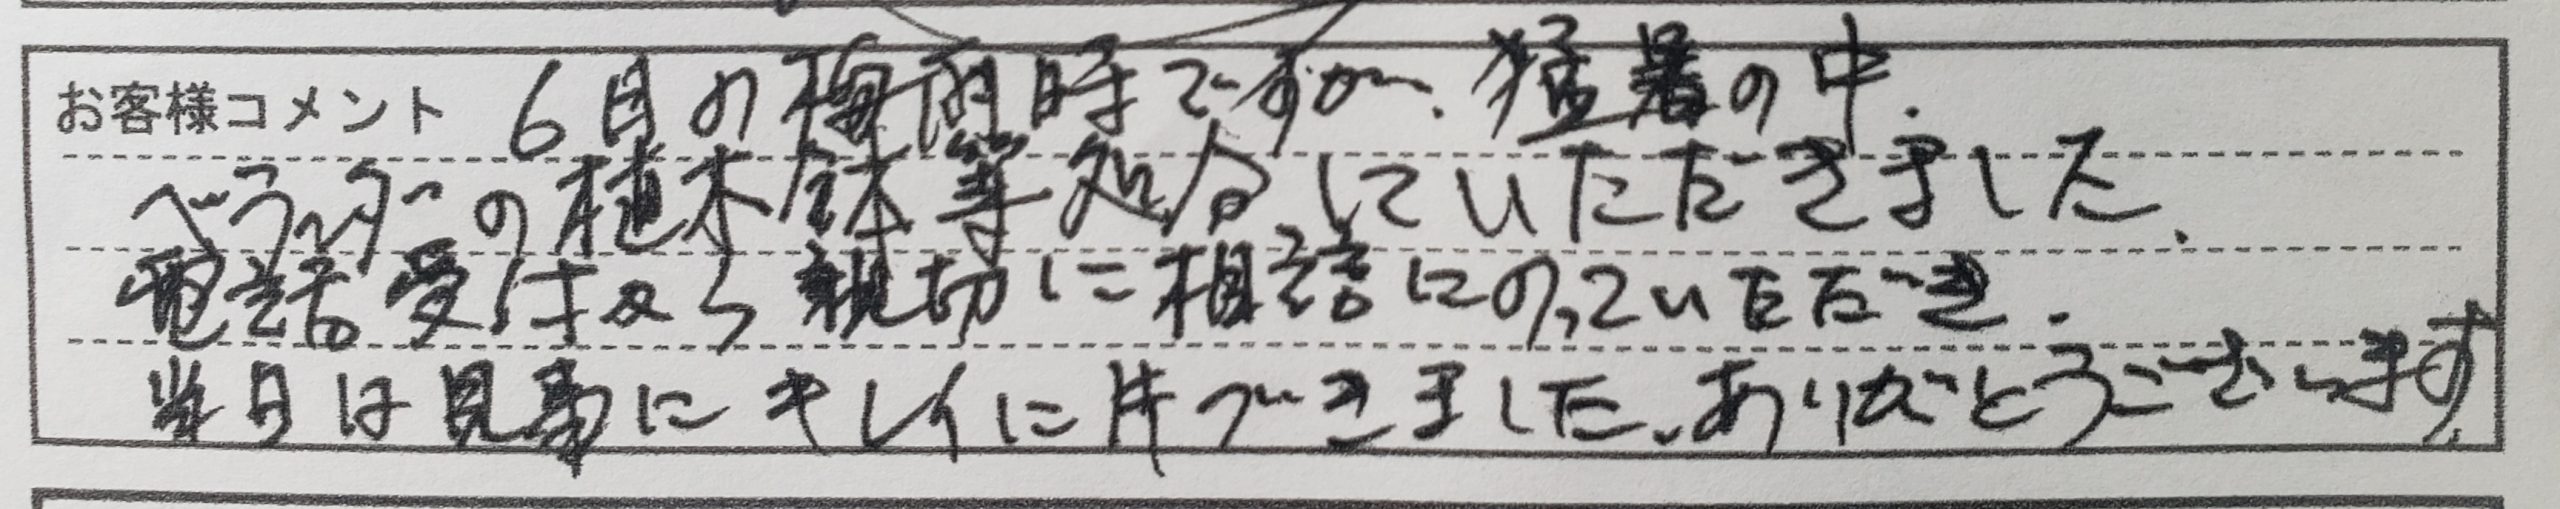 お客様コメント 6月の梅雨時ですが、猛暑の中、
ベランダの植木鉢等処分していただきました。
電話受付から親切に相談にのっていただき、
当日は見事にキレイに片づきました、ありがとうございます。